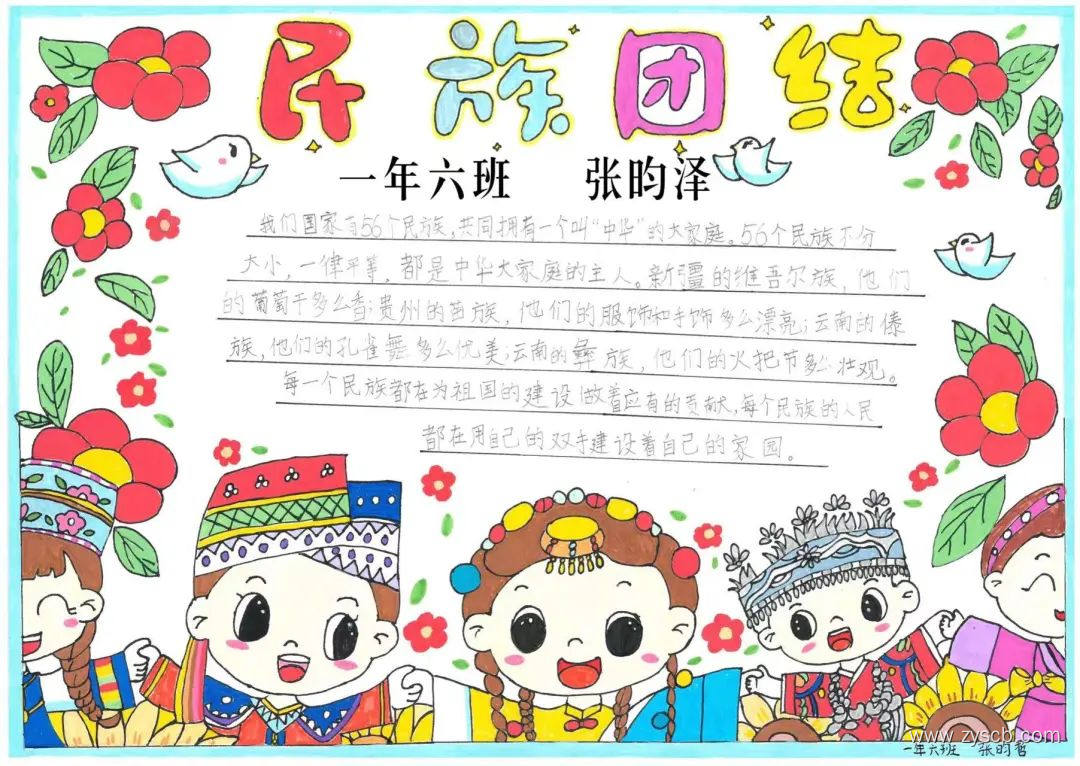 民族团结
一年六班 张昀泽
我们国家有56个民族,共同拥有一个叫“中华”的大家庭。56个民族不分
大小,一律平等,都是中华大家庭的主人。新疆的维吾尔族,他们
的葡萄干多么香;贵州的苗族,他们的服饰和手饰多么漂亮;云南的傣
族,他们的孔雀舞多么优美;云南的彝族,他们的火把节多么壮观。
每一个民族都在为祖国的建设做着应有的贡献,每个民族的人民
都在用自己的双手建设着自己的家园。
www.zyscb.com
一年六班 张昀哲